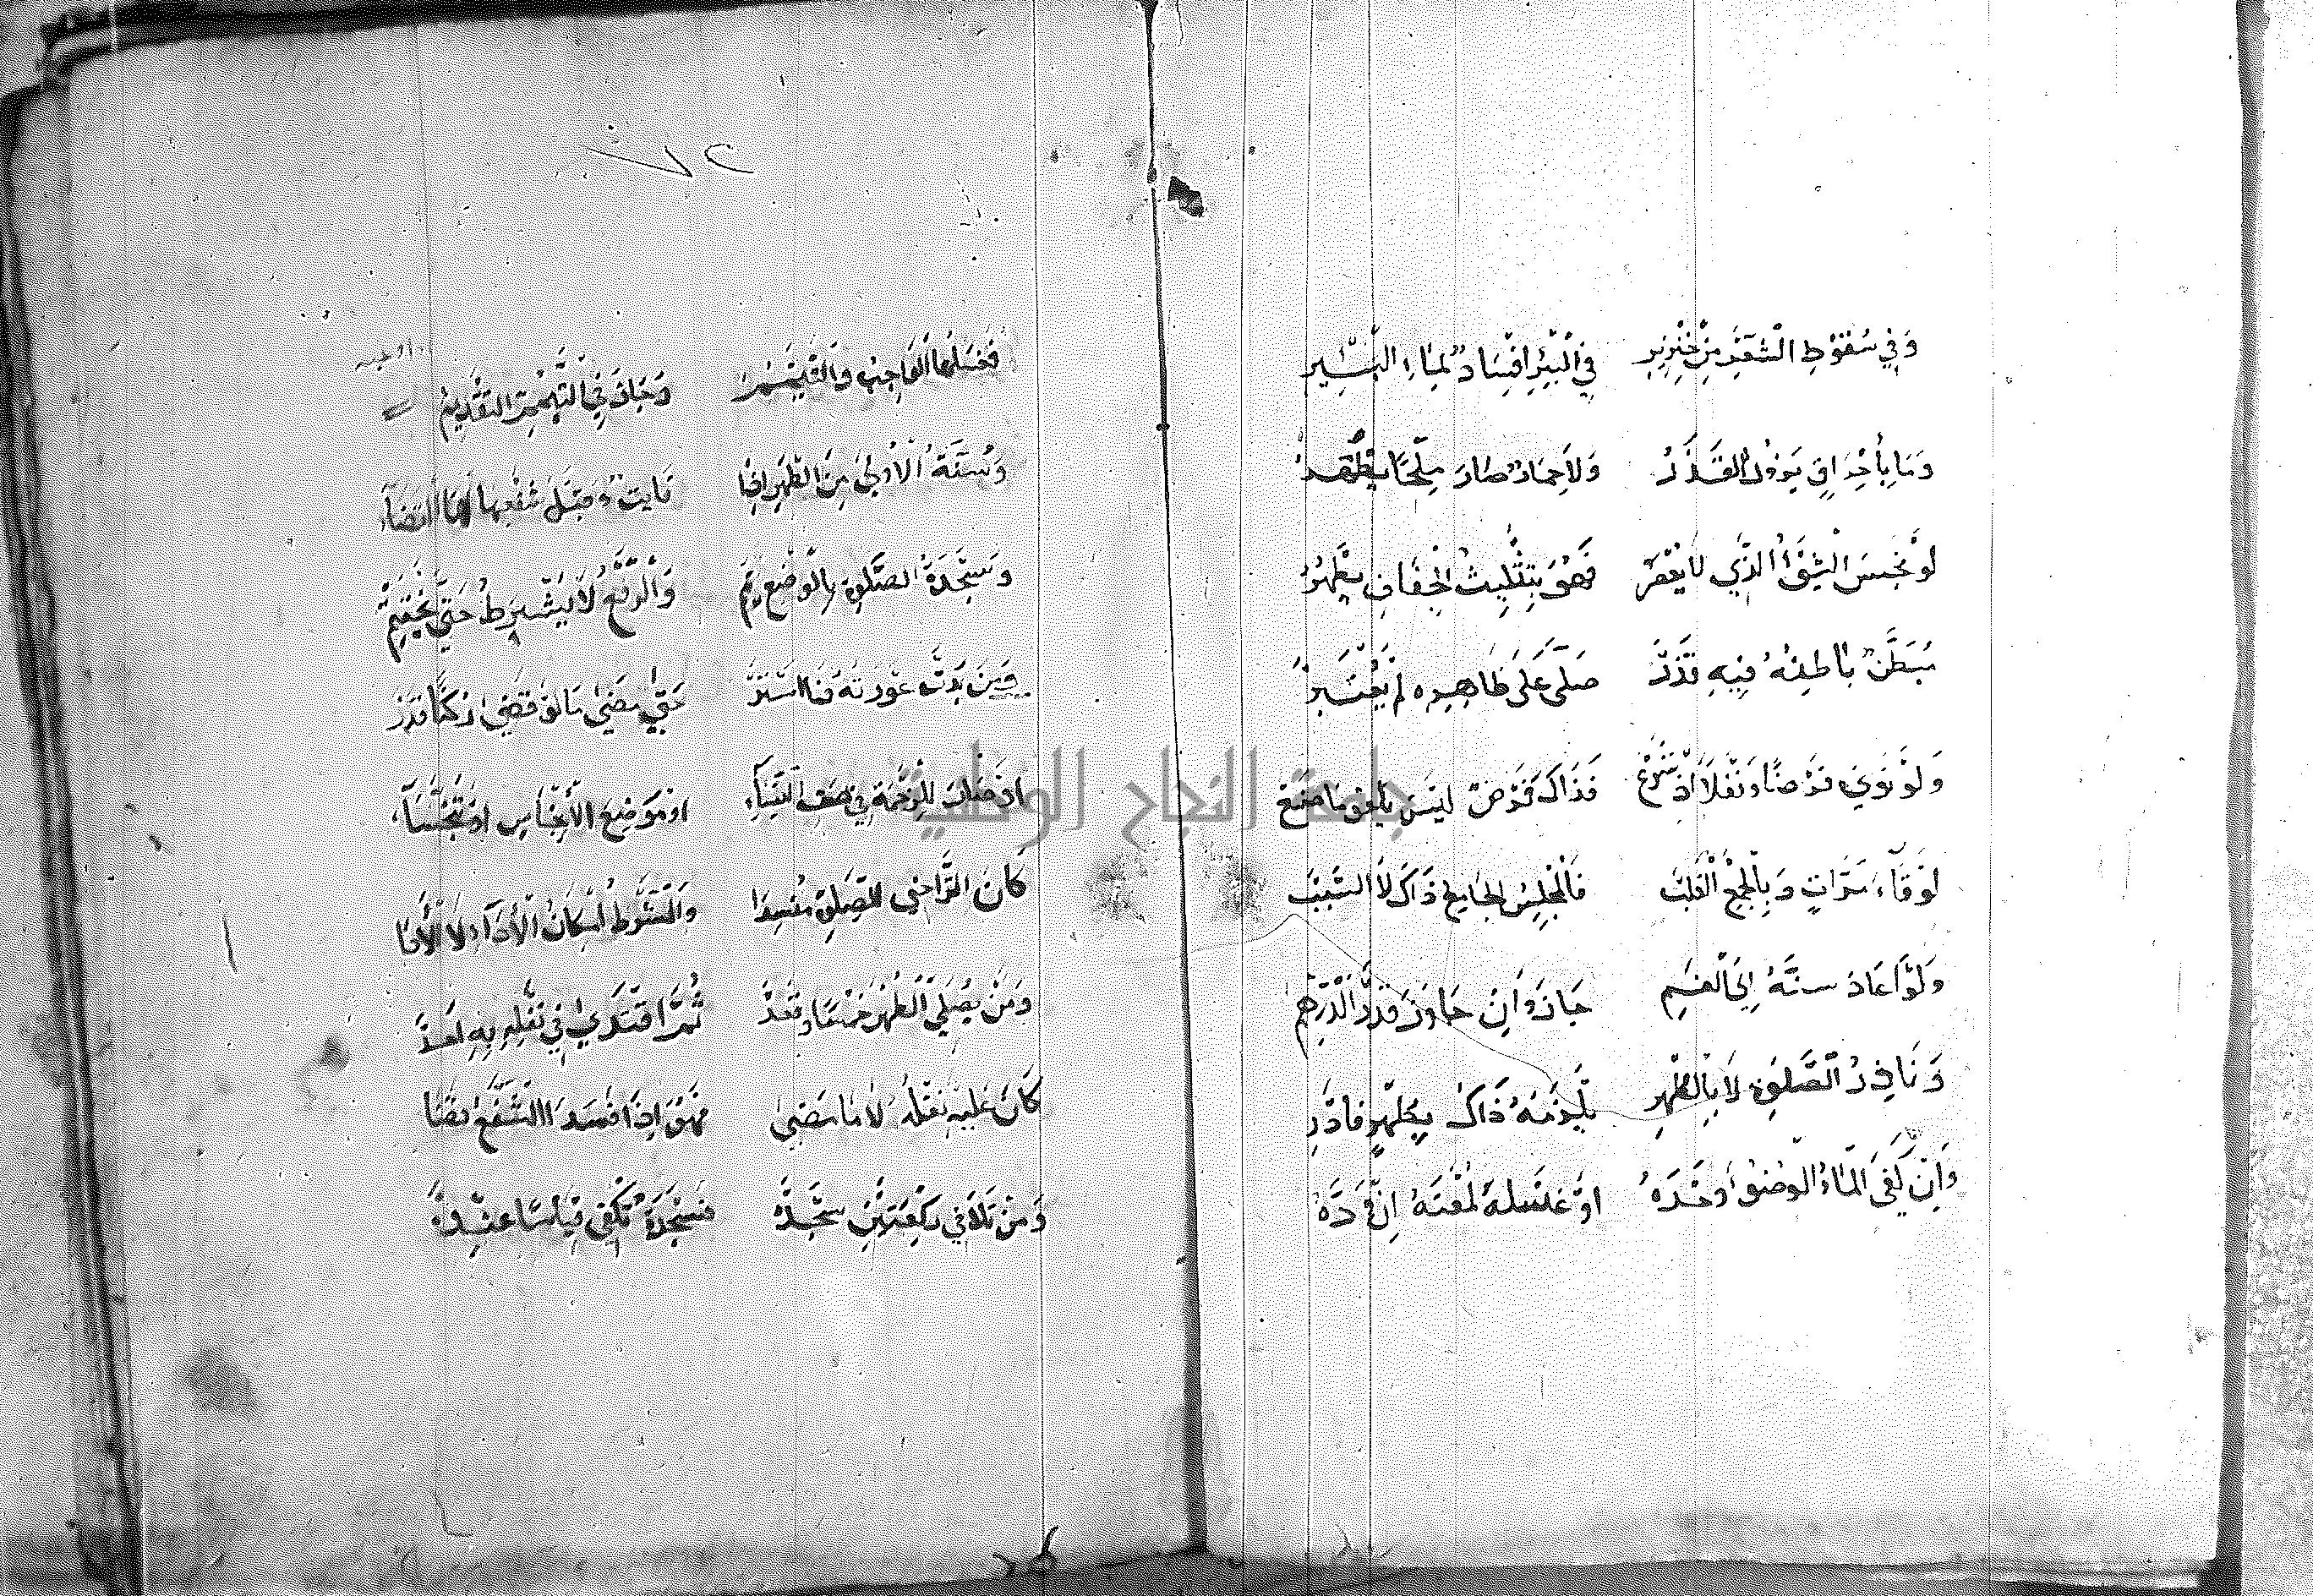 وَفِي سُقُوطِ الشَّعْرِ مِنْ خِنْزِيرِ فِي الْبِئْرِ اِفْسَادٌ لِمَاءِ الْبِيرِ
وَمَا بِأُخْرَاقٍ يَزُولُ الْقَذَرُ وَلَا حِمَارٌ صَارَ مِلْحًا يَطْهُرُ
لَوْ نَجِسَ الشَّيْءُ الَّذِي لَا يُعْصَرُ فَهُوَ بِتَثْلِيثِ الْجَفَافِ يَطْهُرُ
مُبَطَّنٌ بَاطِنُهُ فِيهِ قَذَرْ صَلَّى عَلَى ظَاهِرِهِ لَمْ يُعْتَبَرْ
وَلَوْ نَوَى فَرْضًا وَنَفْلًا اِذْ شَرَعْ فَذَاكَ فَرْضٌ لَيْسَ يَلْغُو مَا صَنَعْ
لَوْ قَاءَ مَرَّاتٍ وَبِالْجَمْعِ انْقَلَبْ فَالْمَجْلِسُ الْجَامِعُ ذَاكَ لَا السَّبَبْ
وَلَوْ أَعَادَ سِنَّهُ اِلَى الْفَمِ جَازَ وَاِنْ جَاوَزَ قَدْرَ الدِّرْهَمِ
وَنَاذِرُ الصَّلٰوةِ لَا بِالطُّهْرِ يَلْزَمُهُ ذَاكَ بِطُهْرٍ فَادْرِ
وَاِنْ كَفَى الْمَاءُ الْوُضُوءَ وَحْدَهُ اَوْ غَسْلَهُ لُمْعَتَهُ اِنْ فَرَّدَهُ
٢٧
فَغَسْلُهَا الْوَاجِبُ وَالتَّيَمُّمُ وَجَازَ فِي التَّيَمُّمِ التَّقْدِيمُ
وَسُنَّةُ الْأُولَى مِنَ الظُّهْرِ اِذَا فَاتَتْ وَقَبْلَ شَفْعِهَا لَهَا الْقَضَاءْ
وَسَجْدَةُ الصَّلٰوةِ بِالْوَضْعِ تَتِمّْ وَالرَّفْعُ لَا يُشْرَطُ حَتَّى تَخْتَتِمْ
وَمَنْ بَدَتْ عَوْرَتُهُ فَمَا اسْتَتَرْ حَتَّى مَضَى مَا لَوْ قَضَى رُكْنًا قَدَرْ
اَوْ صَارَ لِلزَّحْمَةِ فِي صَفِّ النِّسَاءِ اَوْ مَوْضِعِ الْأَنْجَاسِ اَوْ
كَانَ التَّرَاخِي لِلصَّلٰوةِ مُفْسِدَا وَالشَّرْطُ اِمْكَانُ الْأَدَاءِ لَا الْأَدَا
وَمَنْ يُصَلِّي الظُّهْرَ خَمْسًا وَقَعَدْ ثُمَّ اقْتَدَى فِي نَفْلِهِ بِهِ اَحَدْ
كَانَ عَلَيْهِ نَفْلُهُ لَا مَا مَضَى فَهُوَ اِذَا اَفْسَدَ الشَّفْعَ قَضَا
وَمَنْ تَلَا فِي رَكْعَتَيْنِ سَجْدَهْ فَسَجْدَةٌ تَكْفِي قِيَاسًا عِنْدَهْ
جامعة النجاح الوطنية